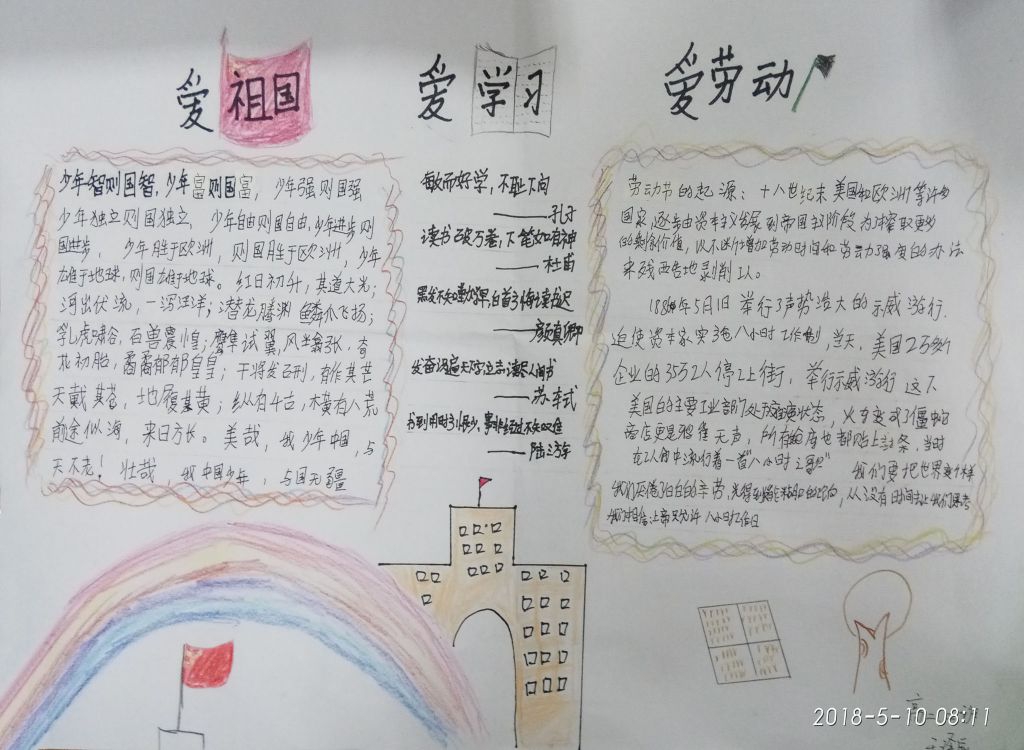 爱祖国
爱学习
爱劳动
少年智则国智,少年富则国富, 少年强则国强
少年独立则国独立, 少年自由则国自由,少年进步则
国进步, 少年胜于欧洲, 则国胜于欧洲, 少年
雄于地球,则国雄于地球。红日初升,其道大光;
河出伏流,一泻汪洋;潜龙腾渊 鳞爪飞扬;
乳虎啸谷,百兽震惶;鹰隼试翼,风尘翕张,奇
花初胎,矞矞皇皇;干将发硎,有作其芒
天戴其苍,地履其黄;纵有千古,横有八荒
前途似海,来日方长。美哉,我少年中国,与
天不老! 壮哉,我中国少年,与国无疆
敏而好学,不耻下问
——孔子
读书破万卷,下笔如有神
——杜甫
黑发不知勤学早,白首方悔读书迟
——颜真卿
发奋识遍天下字,立志读尽人间书
——苏轼
书到用时方恨少,事非经过不知难
——陆游
劳动节的起源:十八世纪末 美国和欧洲等许多
国家,逐步由资本主义发展到帝国主义阶段 为榨取更多
的剩余价值,以不断增加劳动时间和劳动强度的办法
来残酷地剥削工人。
年5月1日 举行了声势浩大的示威游行.
迫使资本家实施八小时工作制,当天,美国2万多个
企业的35万工人停工上街,举行示威游行 这下
美国的主要工业部门处于瘫痪状态,火车变成了僵蛇
商店更是鸦雀无声,所有仓库也都贴上封条,当时
在工人间中流行着一首"八小时之歌" 我们要把世界变个样
我们厌倦了白白的辛劳,光得到糊口的,从没有时间去让我们思考
我们相信:上帝只允许 八小时工作日
2018-5-10 08:11